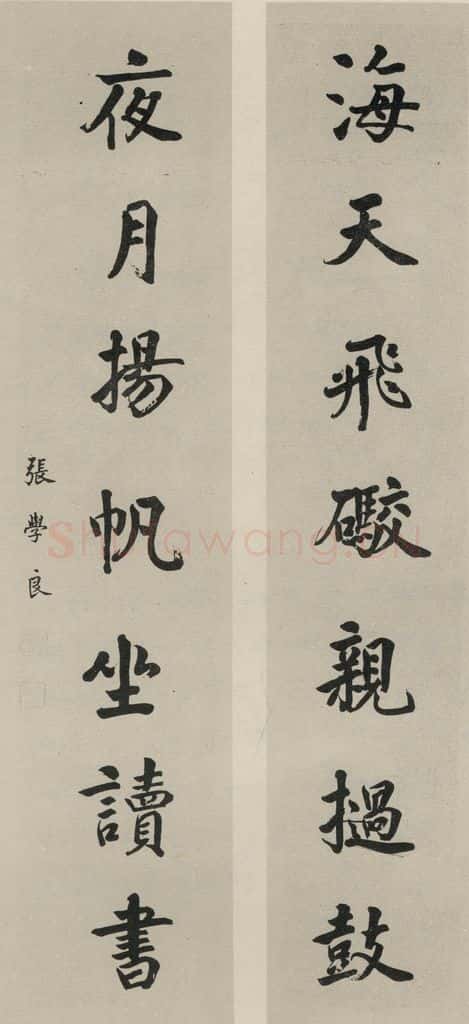 海天飛礮親撾鼓
夜月揚帆坐讀書
張學良
Shufawang.cn